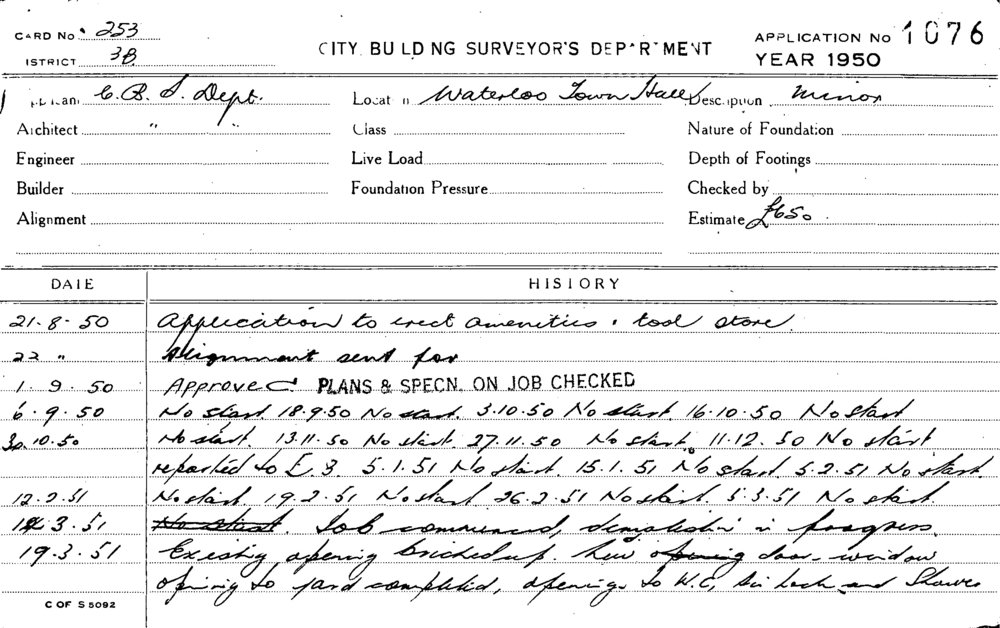 CARD No 253
CITY BUILDING SURVEYOR'S DEPARTMENT
APPLICATION No 1076
DISTRICT 3B
YEAR 1950
Applicant C.B.S. Dept. Location Waterloo Town Hall Description Minor
Architect " " Class Nature of Foundation
Engineer Live Load Depth of Footings
Builder Foundation Pressure Checked by
Alignment Estimate £650
DATE HISTORY
21.8.50 Application to erect amenities & tool store.
22 " Alignment sent for
1.9.50 Approved PLANS & SPECN. ON JOB CHECKED
6.9.50 No start. 18.9.50 No start. 3.10.50 No start 16.10.50 No start
30.10.50 No start. 13.11.50 No start. 27.11.50 No start. 11.12.50 No start
reported to E.3. 5.1.51 No start. 15.1.51 No start. 5.2.51 No start.
12.2.51 No start 19.2.51 No start 26.2.51 No start. 5.3.51 No start.
12.3.51 No start. Job commenced, demolishing in progress.
19.3.51 Existing opening bricked up. New opening door - window
opening to yard completed, openings to W.C., and Shower
C OF S 5092